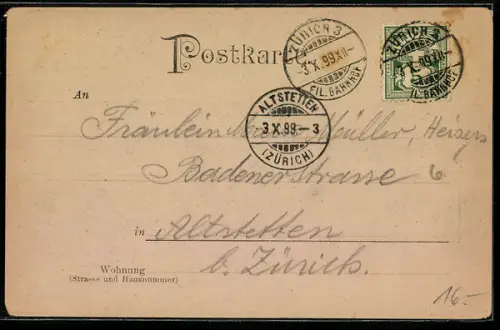 Postkarte
ZÜRICH 3
3.X.99.XII
FIL. BAHNHOF
ZÜRICH 3
3.X.99.XII
FIL. BAHNHOF
5
ALTSTETTEN
3 X 99 - 3
(ZÜRICH)
An
Fräulein Müller,
Badenerstrasse 6
in Altstetten
b. Zürich.
Wohnung
(Strasse und Hausnummer)
16.-